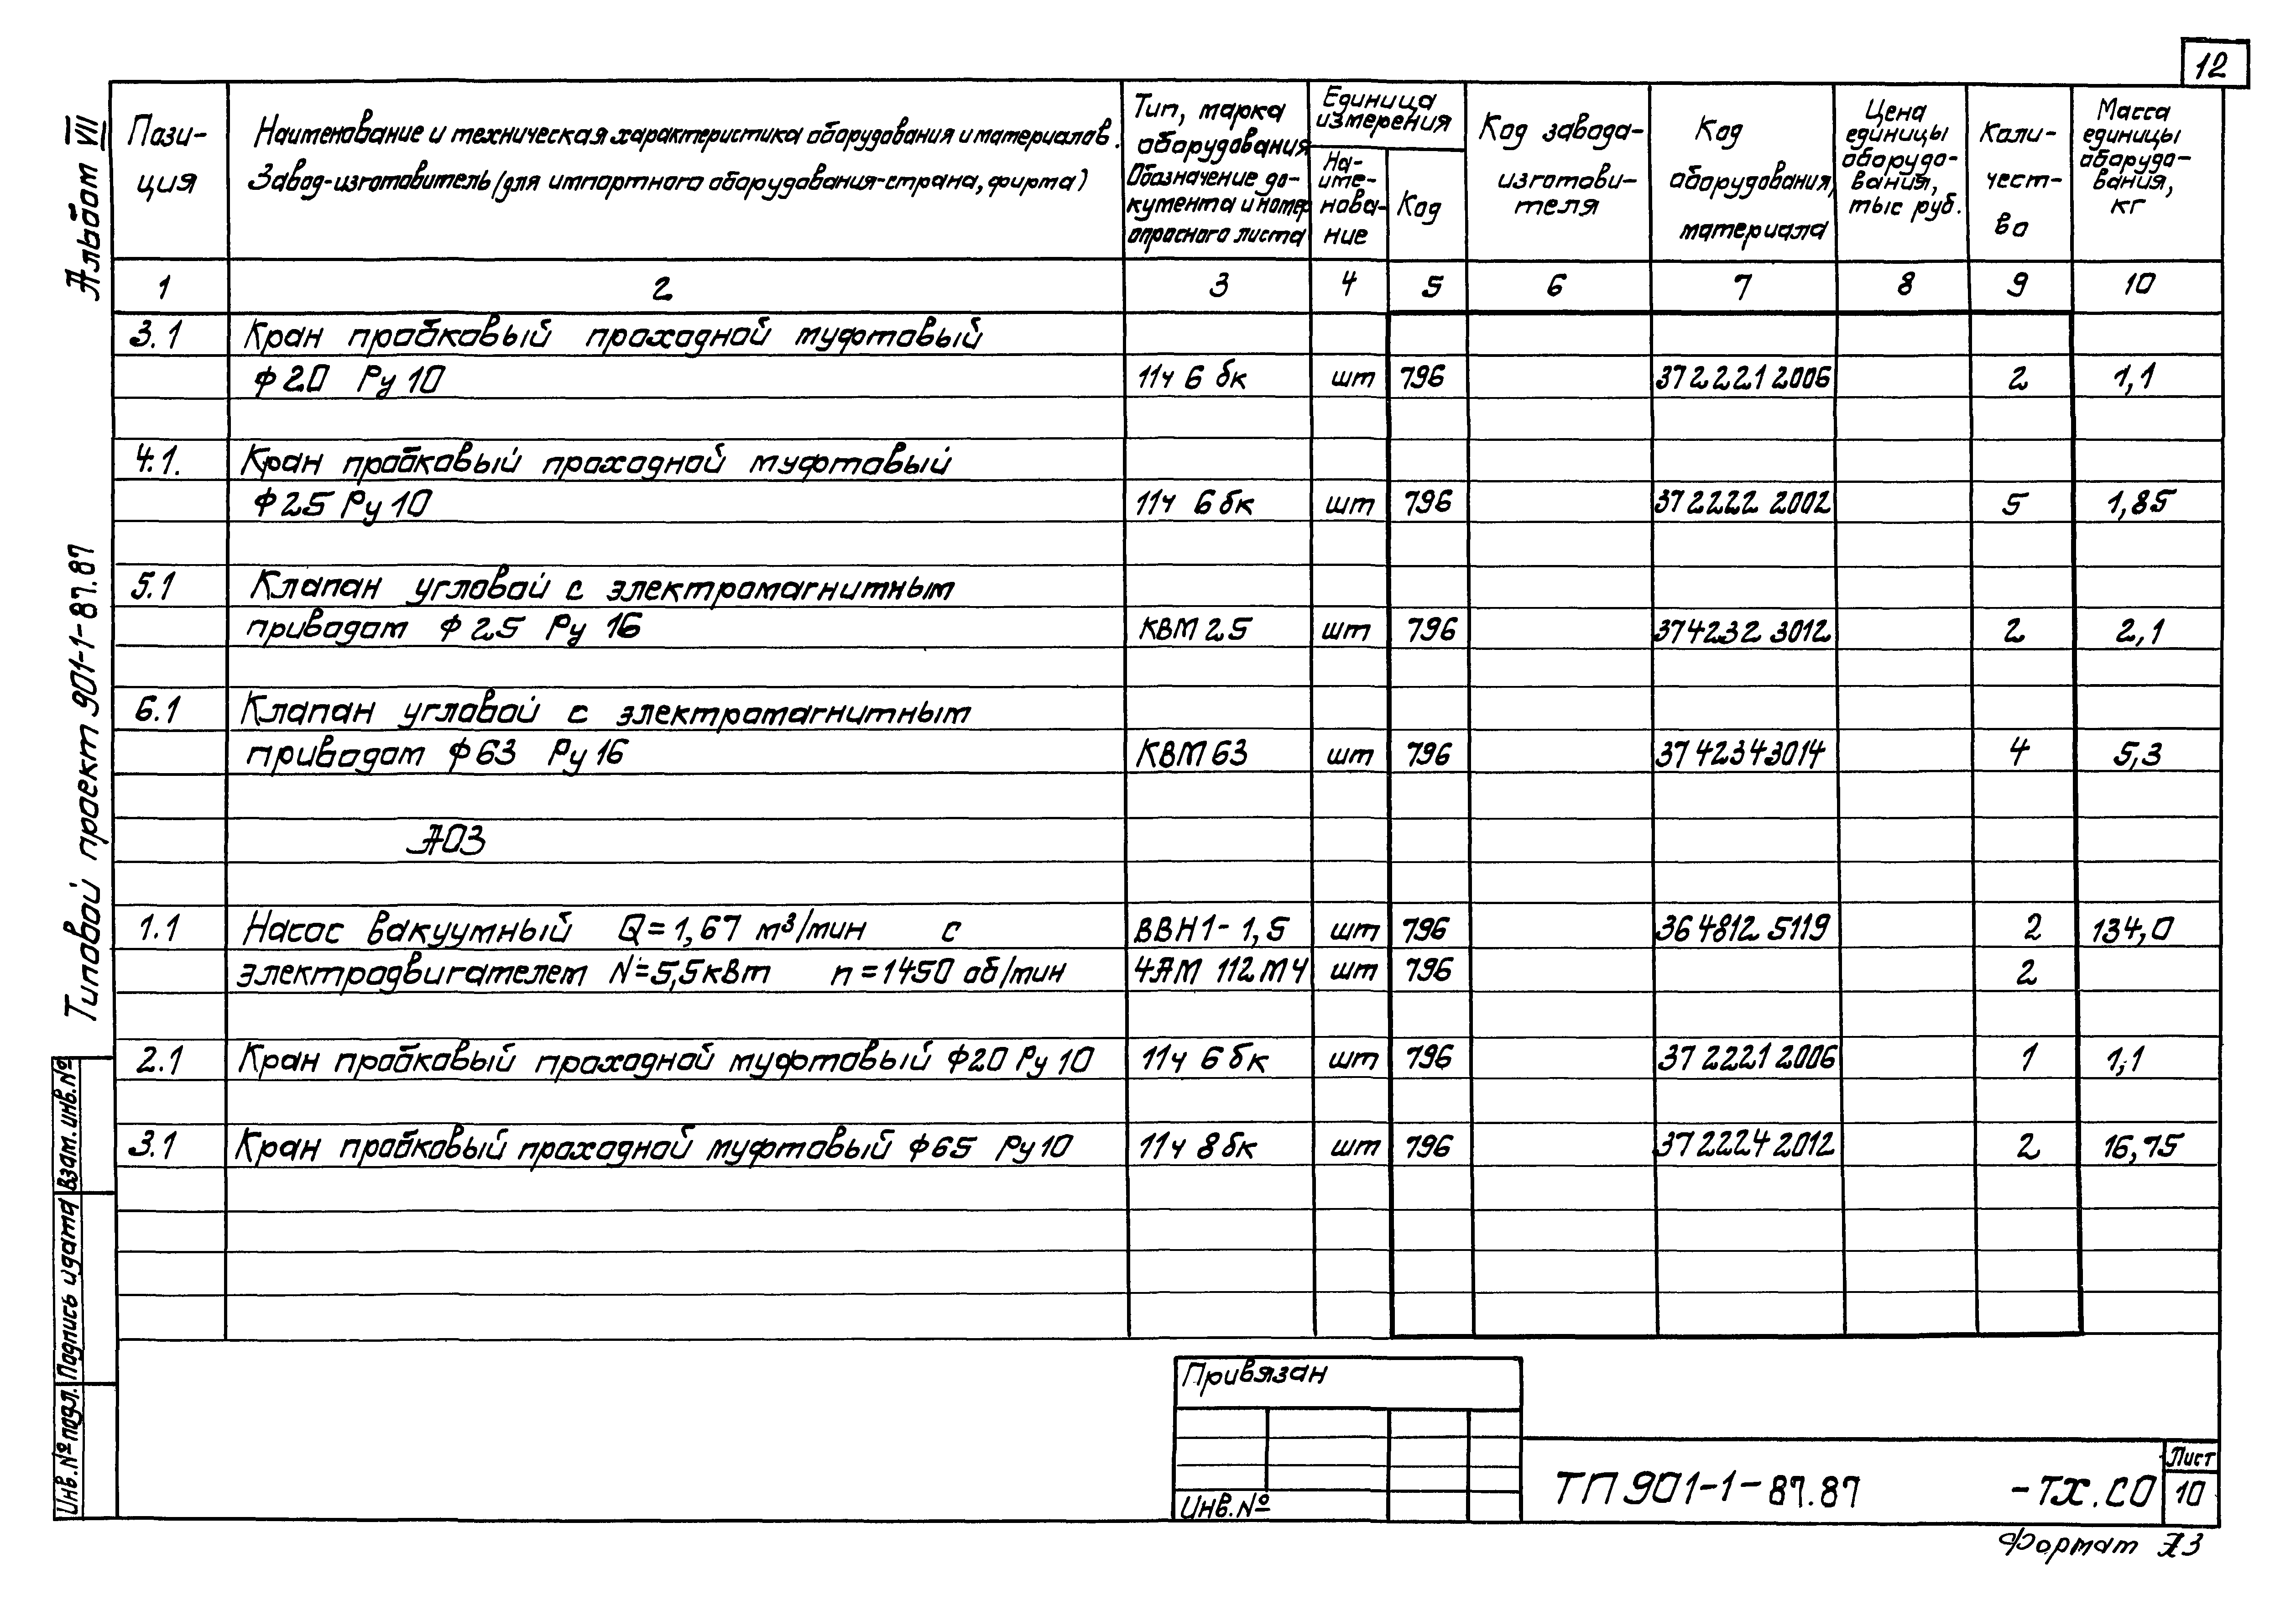 12
Альбом VII
Типовой проект 901-1-87.87
Пози-
ция
Наименование и техническая характеристика оборудования и материалов.
Завод-изготовитель (для импортного оборудования-страна, фирма)
Тип, марка
оборудования
Обозначение до-
кумента и номер
опросного листа
Единица
измерения
На-
име-
нова-
ние
Код
Код завода-
изготови-
теля
Код
оборудования,
материала
Цена
единицы
оборудо-
вания,
тыс руб.
Коли-
чест-
во
Масса
единицы
оборудо-
вания,
кг
1 2 3 4 5 6 7 8 9 10
3.1 Кран пробковый проходной муфтовый
ф 20 Ру 10 11ч 6 бк шт 796 37 2221 2006 2 1,1
4.1. Кран пробковый проходной муфтовый
ф 25 Ру 10 11ч 6 бк шт 796 37 2222 2002 5 1,85
5.1 Клапан угловой с электромагнитным
приводом ф 25 Ру 16 КВМ 25 шт 796 37 4232 3012 2 2,1
6.1 Клапан угловой с электромагнитным
приводом ф 63 Ру 16 КВМ 63 шт 796 37 4234 3014 4 5,3
А03
1.1 Насос вакуумный Q = 1,67 м³/мин с ВВН1-1,5 шт 796 36 4812 5119 2 134,0
электродвигателем N=5,5 кВт n = 1450 об/мин 4АМ 112 М4 шт 796 2
2.1 Кран пробковый проходной муфтовый ф20 Ру 10 11ч 6 бк шт 796 37 2221 2006 1 1,1
3.1 Кран пробковый проходной муфтовый ф 65 Ру 10 11ч 8 бк шт 796 37 2224 2012 2 16,75
Взам. инв. №
Подпись и дата
Инв. № подл.
Привязан
Инв. №
ТП 901-1-87.87 -ТХ.СО
Лист
10
Формат А3